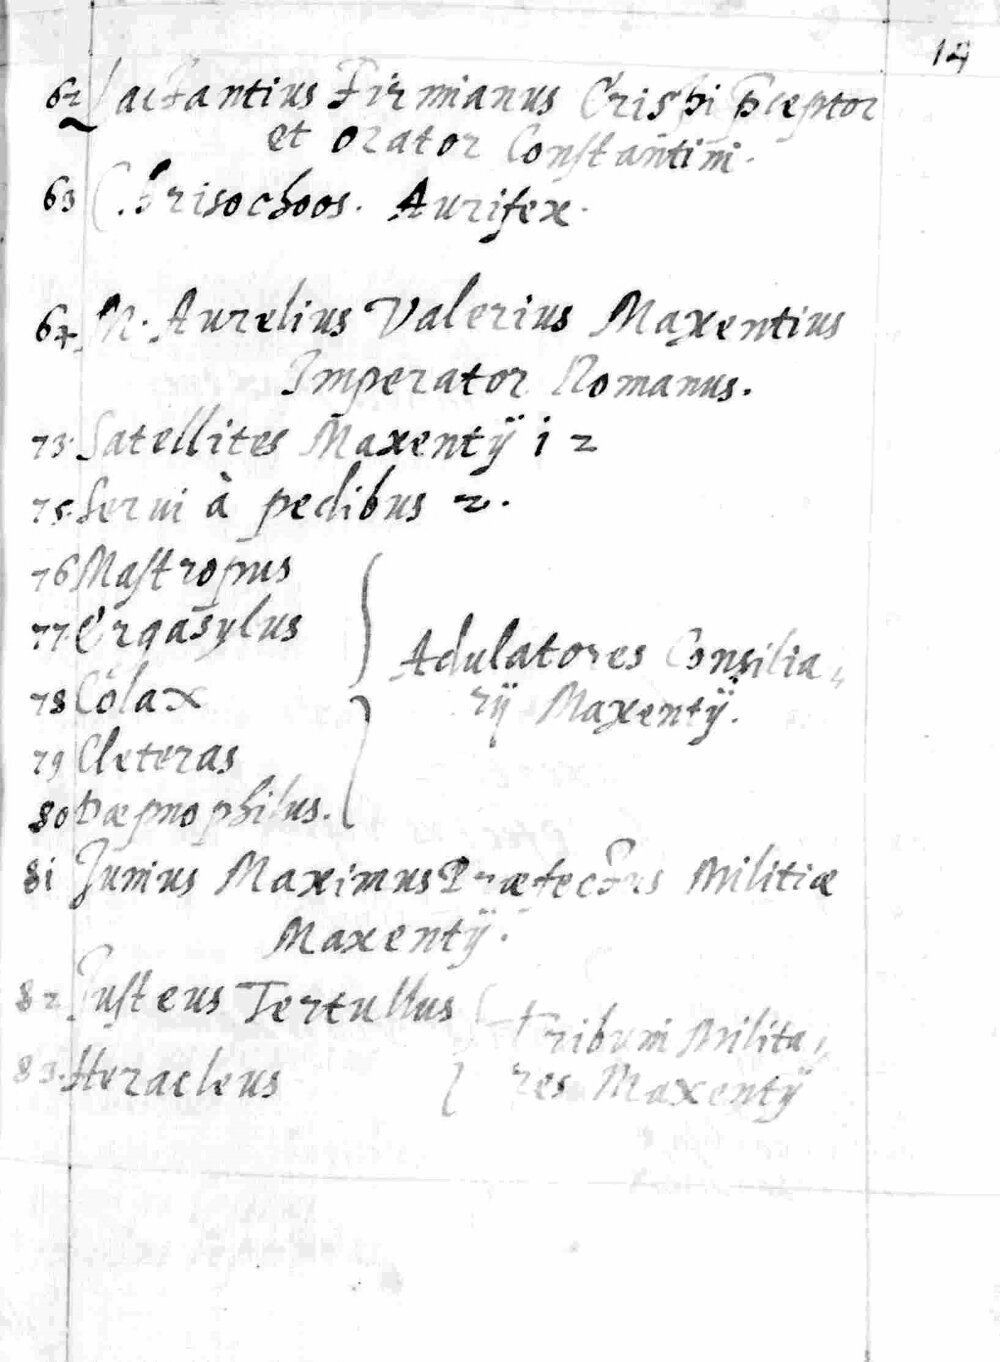 14
62 Lactantius Firmianus Crispi Pceptor
et orator Constantini.
63 Chrisochoos. Aurifex.
64 M. Aurelius Valerius Maxentius
Imperator Romanus.
73. Satellites Maxentÿ i 2
75. Servi à pedibus 2.
76 Mastropus
77. Ergasylus
78 Colax
79 Cleteras
80 Dæpnophilus.
Adulatores Consilia„
rÿ Maxentÿ.
8i Junius Maximus Præfectus Militiæ
Maxentÿ.
82 Justeus Tertullus
83. Heracleus
Tribuni Milita„
res Maxentÿ